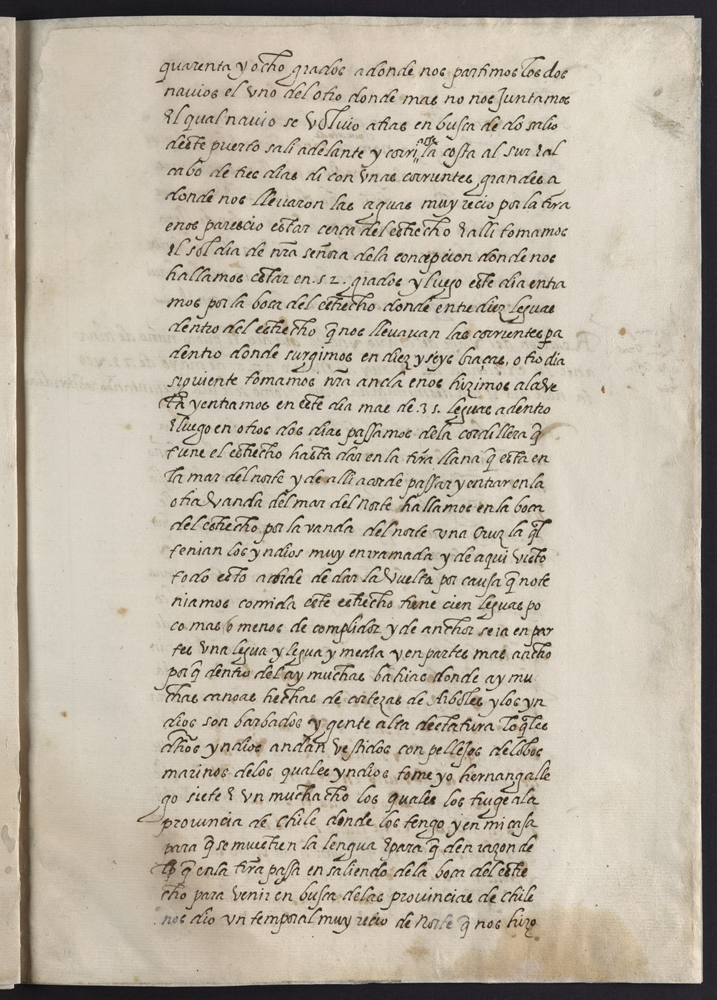 quarenta y ocho grados adonde nos partimos los dos
nauios el vno del otro donde mas no nos Juntamos
el qual nauio se Voluio atras en busca de do salio
deste puerto sali adelante y corri la costa al sur e al
cabo de tres dias di con vnas corrientes grandes a
donde nos lleuaron las aguas muy recio por la trra
e nos parescio estar cerca del estrecho e alli tomamos
el sol dia de nra señora dela concepcion donde nos
hallamos estar en .52. grados y luego este dia entra
mos por la boca del estrecho donde entre diez leguas
dentro del estrecho q nos lleuauan las corrientes pa
dentro donde surgimos en diez y seys braças, otro dia
siguiente tomamos nra ancla e nos hizimos ala ve
la y entramos en este dia mas de .35. leguas adentro
e luego en otros dos dias passamos dela cordillera q
tiene el estrecho hasta dar en la trra llana q esta en
la mar del norte y de alli acorde passar y entrar en la
otra Vanda del mar del Norte hallamos en la boca
del estrecho por la vanda del norte vna Cruz la ql
tenian los yndios muy enrramada y de aqui visto
todo esto acorde de dar la Vuelta por causa q no te
niamos comida este estrecho tiene cien leguas po
co mas o menos de complidor y de anchor sera en par
tes vna legua y legua y media y en partes mas ancho
porq dentro del ay muchas bahias donde ay mu
chas canoas hechas de cortezas de arboles y los yn
dios son barbados y gente alta de estatura los qles
dhos yndios andan vestidos con pellejos de lobos
marinos delos quales yndios tome yo hernan galle
go siete e vn muchacho los quales los truge ala
prouincia de Chile donde los tengo y en mi casa
para q se muestren la lengua e para q den razon de
lo q en la trra passa en saliendo dela boca del estre
cho para venir en busca delas prouincias de chile
nos dio vn temporal muy recio de Norte q nos hizo